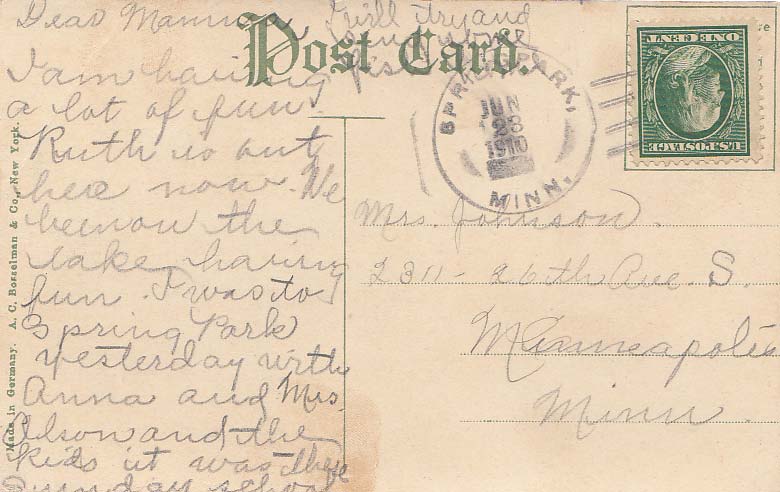 Dear Mamma
I will try and
Post Card.
I am having
a lot of fun.
Ruth is out
here now. We
be now the
lake having
fun. I was to
Spring Park
yesterday with
Anna and Mrs.
Olson and the
kids it was the
Sunday school
Made in Germany. A. C. Bosselman & Co., New York.
SPRING PARK,
JUN
23
1910
MINN.
U.S. POSTAGE
ONE CENT
Mrs. Johnson.
2311 - 26th Ave. S.
Minneapolis
Minn.